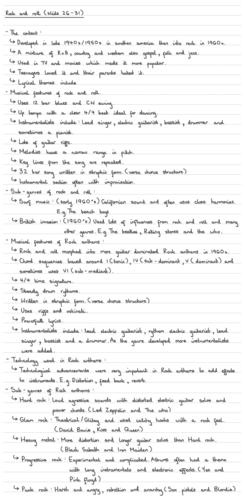 Rock and roll (slides 25-31)
- The context :
↳ Developed in late 1940s/1950s in southern america then into rock in 1960s.
↳ A mixture of R&B, country and western also gospel, folk and jazz.
↳ Used in TV and movies which made it more popular.
↳ Teenagers loved it and their parents hated it.
↳ Lyrical themes include
- Musical features of rock and roll.
↳ Uses 12 bar blues and CW swing
↳ Up tempo with a clear 4/4 beat ideal for dancing.
↳ Instrumentalists include : Lead singer, electric guitarist, bassist, drummer and
sometimes a pianist.
↳ Lots of guitar riffs.
↳ Melodies have a narrow range in pitch.
↳ Key lines from the song are repeated.
↳ 32 bar song written in strophic form. (verse chorus structure)
↳ Instrumental section often with improvisation.
- Sub-genres of rock and roll :
↳ Surf music : (early 1960's) Californian sound and often uses close harmonies.
E.g The beach boys.
↳ British invasion : (1960's) Used lots of influences from rock and roll and many
other genres. E.g The beatles, Rolling stones and the who.
- Musical features of Rock anthems :
↳ Rock and roll morphed into more guitar dominated Rock anthems in 1960s.
↳ Chord sequences based around I (tonic), IV (sub-dominant), V (dominant) and
sometimes uses VI (sub-mediant).
↳ 4/4 time signature.
↳ Steady drum rythms.
↳ Written in strophic form. (verse chorus structure)
↳ Uses riffs and ostinati.
↳ Powerful lyrics.
↳ Instrumentalists include : lead electric guitarist, rythm electric guitarist, lead
singer, bassist and a drummer. As the genre developed more instrumentalists
were added.
- Technology used in Rock anthems :
↳ Technological advancements were very important in Rock anthems to add effects
to instruments. E.g Distortion, feed back, reverb.
- Sub-genres of Rock anthems :
↳ Hard rock : Loud agressive sounds with distorted electric guitar solos and
power chords. (Led Zepplin and The who)
↳ Glam rock : Theatrical / Glitzy and used catchy hooks with a rock feel.
(David Bowie, Kiss and Queen)
↳ Heavy metal : More distortion and longer guitar solos than Hard rock.
(Black Sabbath and Iron Maiden)
↳ Progressive rock : Experimental and complicated. Albums often had a theme
with long instrumentals and electronic effects. (Yes and
Pink floyd)
↳ Punk rock : Harsh and angry, rebellion and anarchy. (Sex pistols and Blondie)